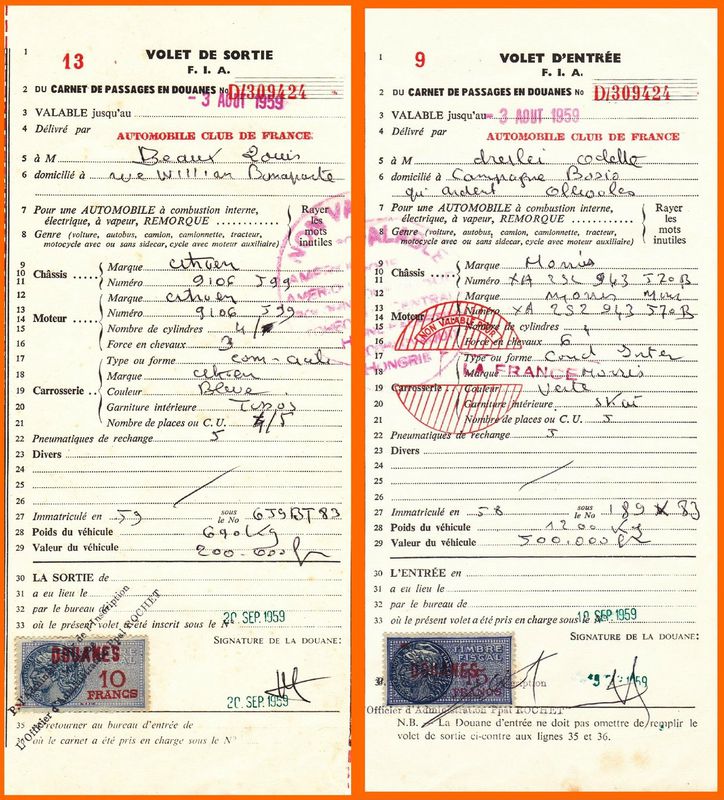 1
13
VOLET DE SORTIE
F. I. A.
2 DU CARNET DE PASSAGES EN DOUANES No D/309424
3 VALABLE jusqu'au - 3 AOUT 1959
4 Délivré par AUTOMOBILE CLUB DE FRANCE
5 à M Beaux Louis
6 domicilié à rue William Bonaparte
7 Pour une AUTOMOBILE à combustion interne,
électrique, à vapeur, REMORQUE
8 Genre (voiture, autobus, camion, camionnette, tracteur,
motocycle avec ou sans sidecar, cycle avec moteur auxiliaire)
Rayer
les
mots
inutiles
9 Marque citroen
10 Châssis
11 Numéro 9106 599
12 Marque citroen
13 Numéro 9106 599
14 Moteur
15 Nombre de cylindres 4
16 Force en chevaux 3
17 Type ou forme
18 Marque citroen
19 Carrosserie Couleur Bleue
20 Garniture intérieure
21 Nombre de places ou C. U. 4/5
22 Pneumatiques de rechange 5
23 Divers
24
25
26
27 Immatriculé en 59 sous le No 659BT83
28 Poids du véhicule 690 Kg
29 Valeur du véhicule 200.000 fr
30 LA SORTIE de
31 a eu lieu le
32 par le bureau d
33 où le présent volet a été inscrit sous le N°
20 SEP. 1959
SIGNATURE DE LA DOUANE:
DOUANES
10
FRANCS
20 SEP. 1959
L'Officier d'
Ppal ROCHET
35 A retourner au bureau d'entrée de
où le carnet a été pris en charge sous le N°
1
9
VOLET D'ENTRÉE
F. I. A.
2 DU CARNET DE PASSAGES EN DOUANES No D/309424
3 VALABLE jusqu'au - 3 AOUT 1959
4 Délivré par AUTOMOBILE CLUB DE FRANCE
5 à M Odette
6 domicilié à Campagne Bosio
qui ardent Ollioules
7 Pour une AUTOMOBILE à combustion interne,
électrique, à vapeur, REMORQUE
8 Genre (voiture, autobus, camion, camionnette, tracteur,
motocycle avec ou sans sidecar, cycle avec moteur auxiliaire)
Rayer
les
mots
inutiles
9 Marque Morris
10 Châssis
11 Numéro XA 2S2 943 570B
12 Marque Morris
13 Numéro XA 2S2 943 570B
14 Moteur
15 Nombre de cylindres 4
16 Force en chevaux 6
NON VALABLE POUR
17 Type ou forme Cond Inter
18 Marque Morris
LA FRANCE
19 Carrosserie Couleur Verte
20 Garniture intérieure Skai
21 Nombre de places ou C. U. 5
22 Pneumatiques de rechange 5
23 Divers
24
25
26
27 Immatriculé en 58 sous le No 189 X 83
28 Poids du véhicule 1200 Kg
29 Valeur du véhicule 500.000 fr
30 L'ENTRÉE en
31 a eu lieu le
32 par le bureau de
33 où le présent volet a été pris en charge sous le N°
10 SEP. 1959
SIGNATURE DE LA DOUANE:
TIMBRE
FISCAL
DOUANES
FRANCS
Officier d'Administration Ppal ROCHET
N.B. — La Douane d'entrée ne doit pas omettre de remplir le
volet de sortie ci-contre aux lignes 35 et 36.